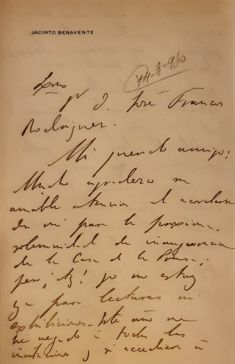 JACINTO BENAVENTE
14-9-930
Sr. D. José Francos
Rodríguez.
Mi querido amigo:
Mucho agradezco su
amable atencion al acordarse
de mi para la proxima
solemnidad de inauguracion
de la Casa de la Prensa;
pero ¡Ay! yo no estoy
ya para lecturas ni
exhibiciones. Este año me
he negado á todas las
invitaciones y si accediera á